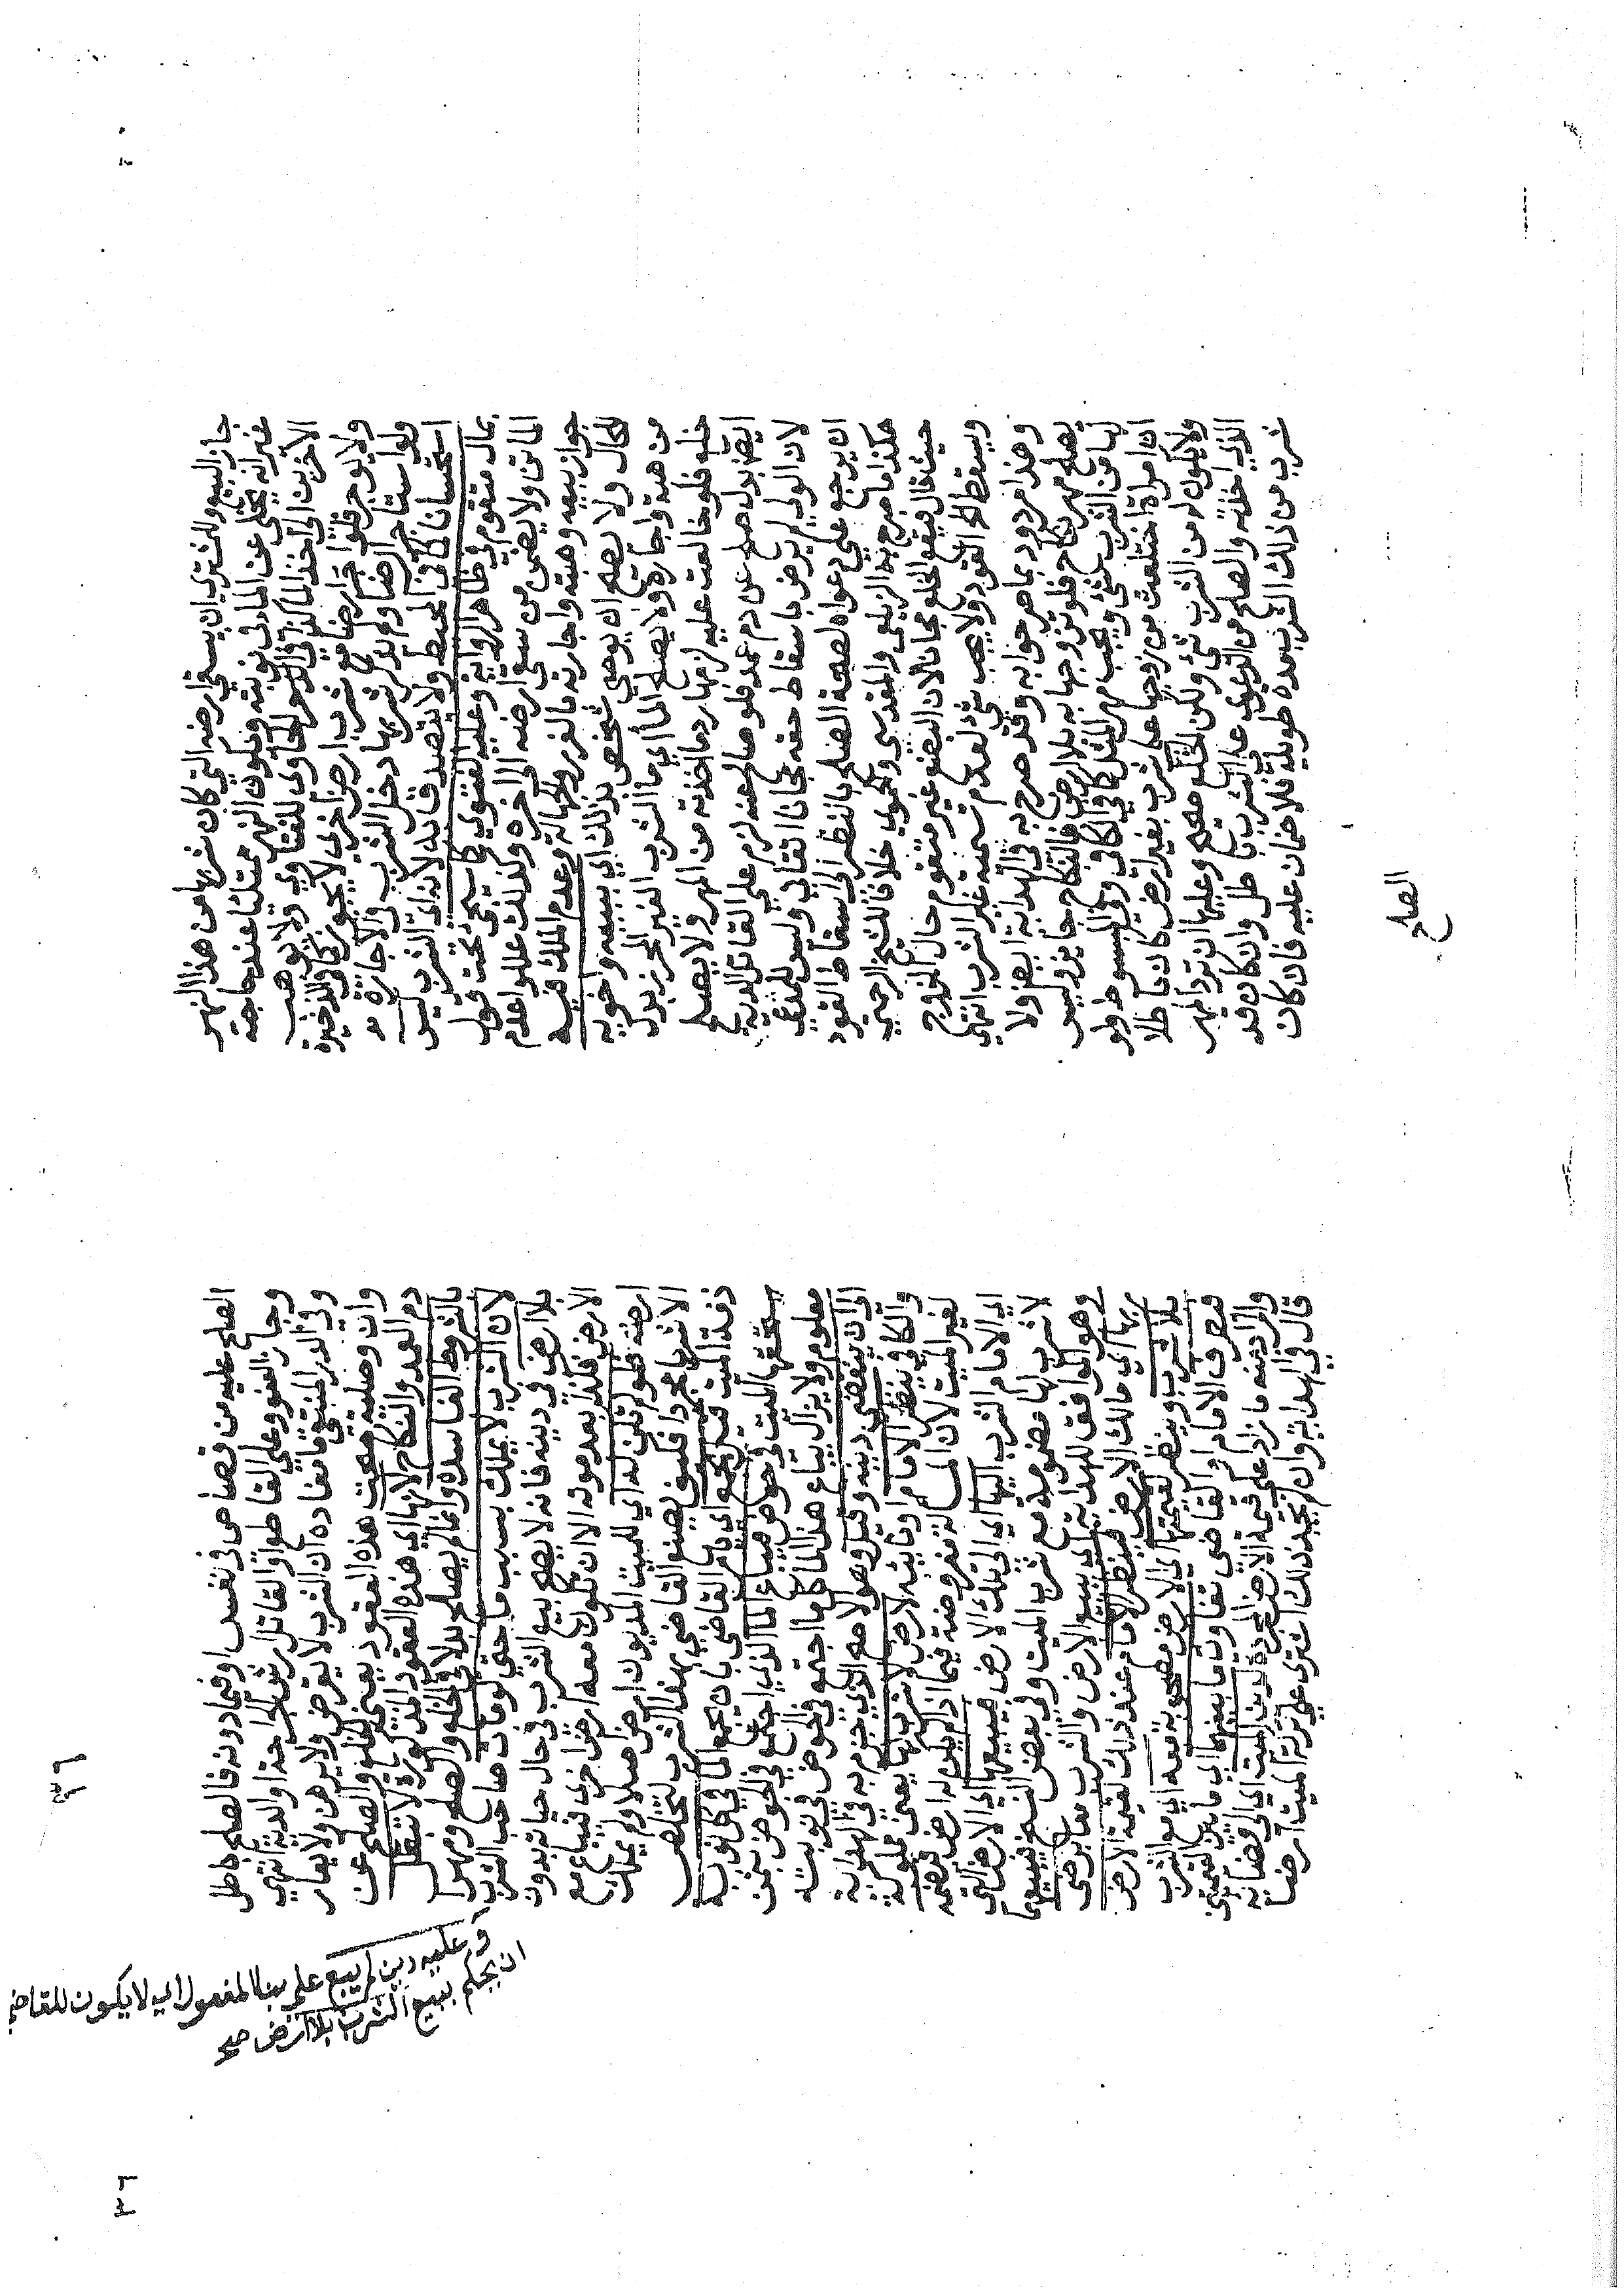 جاز البيع وللمشتري ان يسقي ارضه التي كان شربها من هذا النهر
غير انه يتخلى عن الماء في نوبته ويكون النهر ممتلئا عند حاجة
الآخرين الى اخذ الماء كذا في الحاوي للفتاوي ولا يوهب
ولا يوجر فلو اجر ارضا مع شرب ارض اخرى لا يجوز كما في الذخيرة
ولو استاجر ارضا ولم يذكر شربها دخل الشرب في الاجارة
استحسانا كما في المحيط ولا يتصدق به لانه اي الشرب ليس
بمال متقوم في ظاهر الرواية وعليه الفتوى كما سيجئ تحت قول
الماتن ولا يضمن من سقى ارضه الى اخره وكذلك عللوا عدم
جواز بيعه وهبته واجارته بالغرر والجهالة وعدم الملك فيه
للحال ولا يصلح ان يوصي شخص بذلك اي ببيعه واخويه
من هبة واجارة ولا يصلح الماء اي ماء الشرب الغير المحرز بدل
خلع فلو خالعت عليه لزمها رد ما اخذته من المهر ولا يصلح
ايضا بدل صلح عن دم عمد فلو صالح عنه لزم على القاتل الدية
لان الولي لم يرض باسقاط حقه مجانا اتقاني وليس للمدعي
ان يرجع على دعواه لصحة الصلح بالنظر الى اسقاط القود
هكذا صرح به الزيلعي والمقدسي والحموي خلافا للشيخ الرحمتي
حيث قال فيقع الخلع مجانا لان البضع غير متقوم حال الخروج
ويسقط القود ولا يجب شئ لعدم تسمية غير الشرب انتهى
وهذا مردود بما هو جوابه وقد صرح به في الهداية ايضا ولا
يصلح مهر نكاح فلو تزوجها به بلا ارض فالنكاح جائز وليس
لها من الشرب شئ ويجب مهر المثل كما في الكافي وفي المبسوط ولو
ان امراة اختلعت من زوجها على شرب بغير ارض كان باطلا
ولا يكون له من الشرب شئ ولكن الخلع صحيح وعليها ان ترد المهر
الذي اخذته والصلح من الدعوى على الشرب باطل وان كان قد
شرب من ذلك الشرب مدة طويلة فلا ضمان عليه فان كان
الصلح
الصلح عليه من قصاص في نفس او فيما دونه فالصلح باطل
وجاز العفو وعلى القاطع او القاتل ارش الجراحة او الدية انتهى
وفي الدر المنتقى ما مفاده ان الشرب لا يقرض ولا يرهن ولا يعار
وان وصلية صحت هذه العقود يعني الخلع والصلح عن
دم العمد والنكاح لانها اي هذه العقود المذكورة لا تبطل
بالشروط الفاسدة وانما لم يصلح بدلا في الخلع والصلح ومهرا
لان الشرب لا يملك بسبب ما حتى لو مات صاحب الشرب
وعليه دين لم يبع على بنا المفعول اي لا يكون للقاضي
ان يحكم ببيع الشرب بلا ارض صح
بلا ارض في دينه فانه لا يصح بيع الشرب في حال حياته بدون
الارض فكذا بعد موته الا ان تكون معه ارض اخرى فيباع مع
ارضه فلو لم تكن له اي للميت المديون ارض اصلا ولم يملك
الا شربا مجردا فكيف يصنع القاضي بهذا الشرب ليتخلص
ذمة الميت قيل يجمع اي يامر القاضي بان يجمع الماء في كل نوبة
يستحقها الميت في حوض فيباع الماء الذي اجتمع في الحوض بثمن
معلوم ولا يزال يباع هذا الماء كلما اجتمع في الحوض في نوبته
الى ان ينقضي دينه وقيل وهو الاصح الذي جزم به في الهداية
والكافي ينظر الامام او نائبه لارض لا شرب لها يعني مملوكة
لغير الميت لان المسئلة مفروضة فيما اذا لم يكن له ارض فيضمه
اي الامام الشرب اليها اي الى تلك الارض فيبيعها اي الارض التي
لا شرب لها مضمومة مع شرب الميت وفي بعض النسخ فيبيعهما
وهو الموافق للهداية اي يبيع الارض والشرب معا برضى
ربها اي مالك الارض فينظر الامام عند ذلك لقيمة الارض
بلا شرب وينظر لقيمتها اي الارض مصحوبة معه اي مع الشرب
فيصرف الامام او القاضي تفاوت ما بينهما اي ما بين القيمتين
والزيادة ما زاد على قيمة الارض المجردة لدين الميت اي الى قضائه
قال في الهداية وان لم يجد ذلك اشترى على تركة الميت ارضا